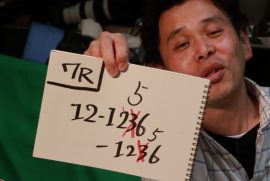 7R
5
12-1236
5
-1236